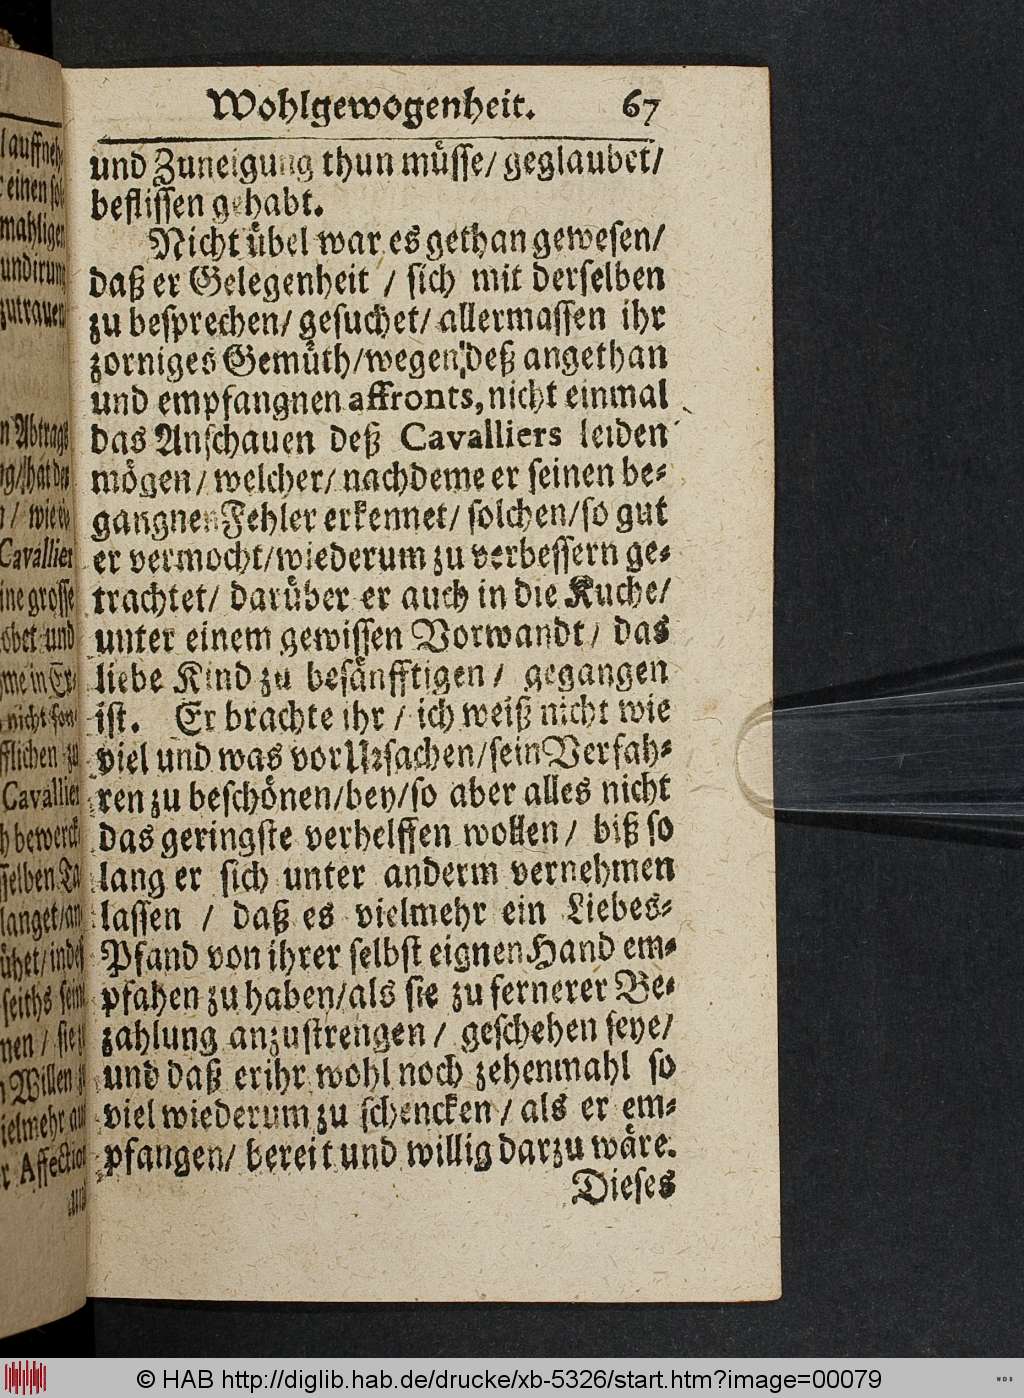 Wohlgewogenheit. 67
und Zuneigung thun müsse/ geglaubet/
beflissen gehabt.
Nicht übel war es gethan gewesen/
daß er Gelegenheit / sich mit derselben
zu besprechen/ gesuchet/ allermassen ihr
zorniges Gemüth/wegen deß angethan
und empfangnen affronts, nicht einmal
das Anschauen deß Cavalliers leiden
mögen/ welcher/ nachdeme er seinen be-
gangnen Fehler erkennet/ solchen/so gut
er vermocht/wiederum zu verbessern ge-
trachtet/ darüber er auch in die Kuche/
unter einem gewissen Vorwandt/ das
liebe Kind zu besänfftigen/ gegangen
ist. Er brachte ihr/ ich weiß nicht wie
viel und was vor Ursachen/sein Verfah-
ren zu beschönen/bey/so aber alles nicht
das geringste verhelffen wollen/ biß so
lang er sich unter anderm vernehmen
lassen / daß es vielmehr ein Liebes-
Pfand von ihrer selbst eignen Hand em-
pfahen zu haben/als sie zu fernerer Be-
zahlung anzustrengen/ geschehen seye/
und daß er ihr wohl noch zehenmahl so
viel wiederum zu schencken/ als er em-
pfangen/ bereit und willig darzu wäre.
Dieses
auffneh
einen sol
mahligen
undirung
zutrauen
Abtrags
hat der
wie
Cavallier
ine grosse
und
me in
nicht
fflichen zu
Cavallier
bewerck
selben
langet/
ühet/indes
seiths sein
nen/ sie
Willen
ielmehr
r Affection
© HAB http://diglib.hab.de/drucke/xb-5326/start.htm?image=00079